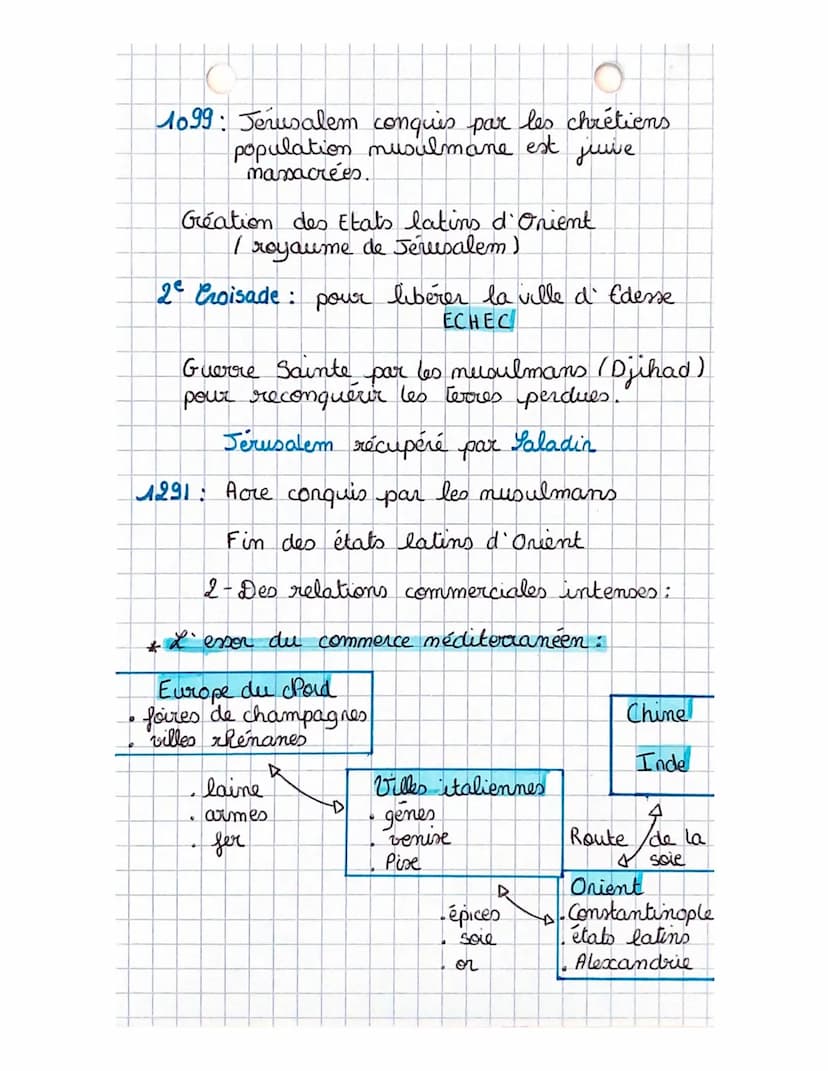 1099 : Jérusalem conquis par les chrétiens
population musulmane est juive
massacrées.
Création des Etats latins d'Orient
( royaume de Jérusalem )
2e Croisade : pour libérer la ville d' Edesse
ECHEC
Guerre Sainte par les musulmans (Djihad)
pour reconquérir les terres perdues.
Jérusalem récupéré par Saladin
1291 : Acre conquis par les musulmans
Fin des états latins d'Orient
2 - Des relations commerciales intenses :
* L'essor du commerce méditerranéen :
Europe du Nord
• foires de champagnes
• villes rhénanes
• laine
• armes
• fer
Villes italiennes
• gênes
• venise
• Pise
Chine
Inde
Route de la
soie
• épices
• soie
• or
Orient
• Constantinople
• états latins
• Alexandrie